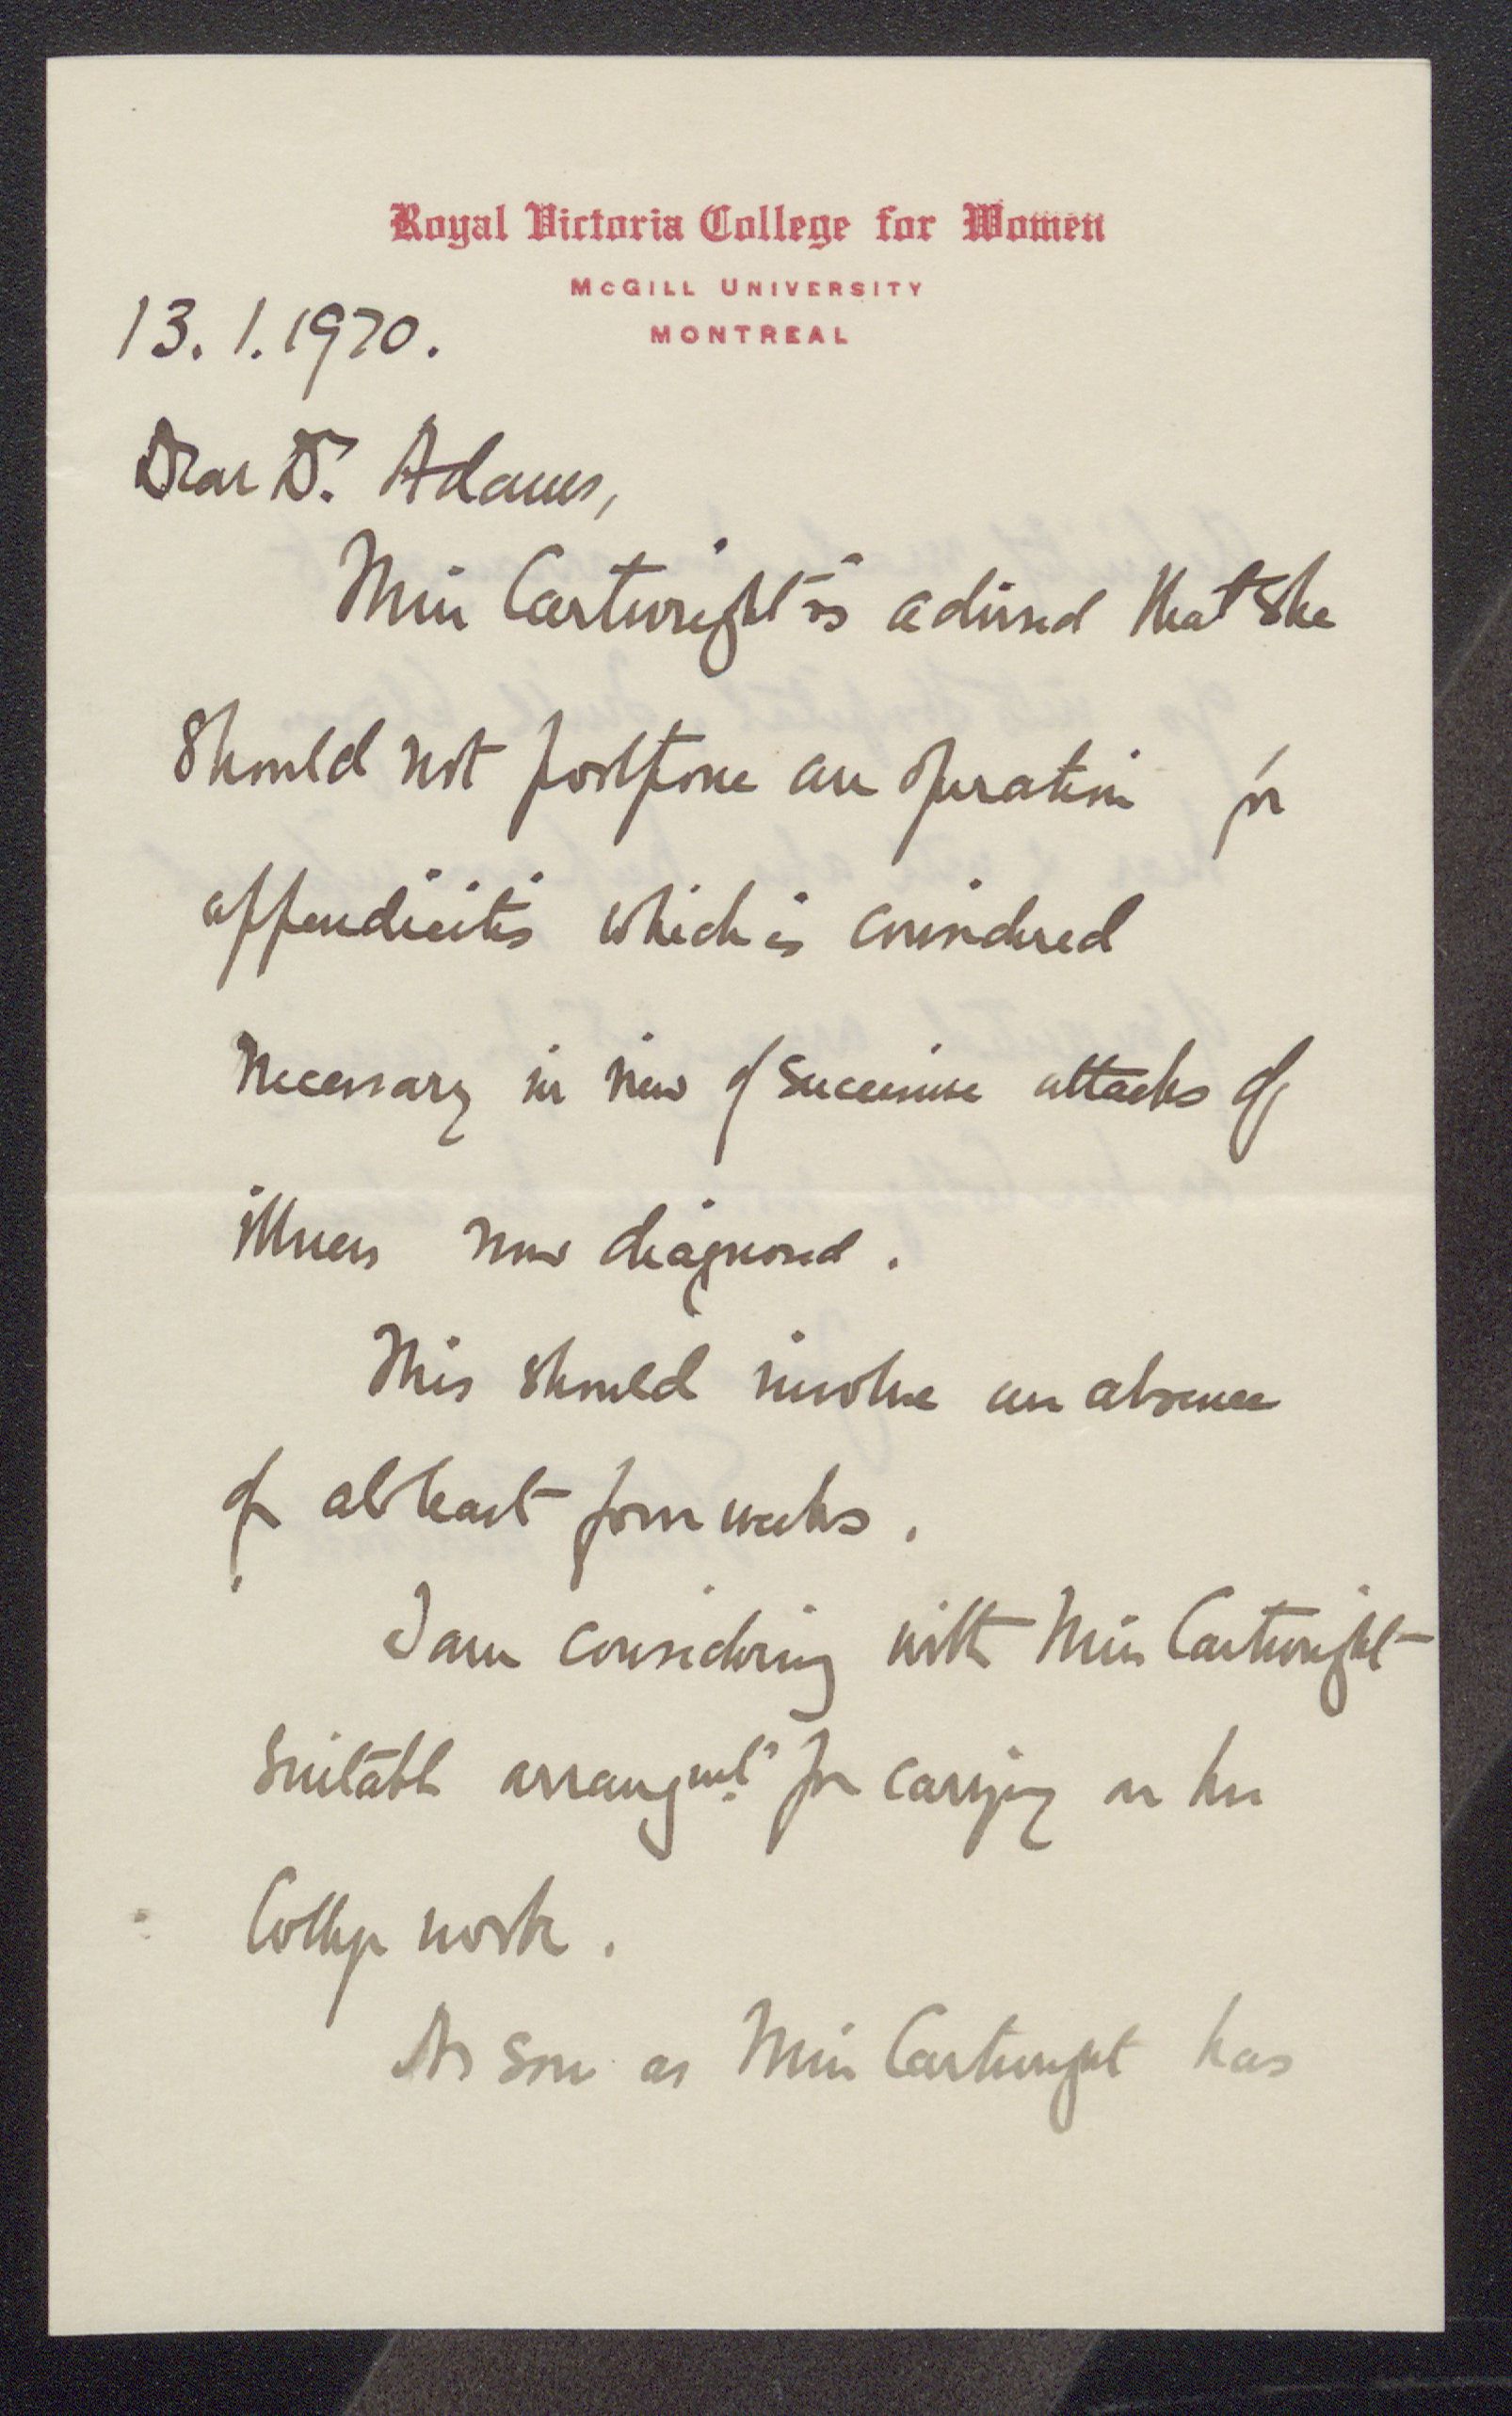 Royal Victoria College for Women
McGILL UNIVERSITY
MONTREAL
13. 1. 1920.
Dear Dr. Adams,
Miss Cartwright is advised that she
should not postpone an operation for
appendicitis which is considered
necessary in view of successive attacks of
illness now diagnosed.
This should involve an absence
of at least four weeks.
I am considering with Miss Cartwright
suitable arrangmts. for carrying on her
College work.
As soon as Miss Cartwright has